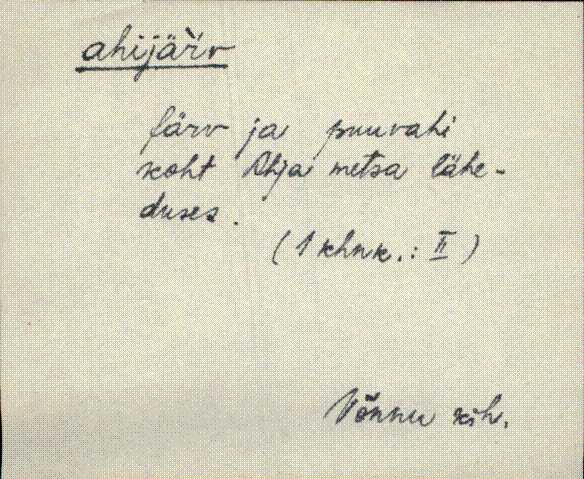 ahijärv
Järv ja puuvahi
koht Ahja metsa lähe-
duses.
(1 khnk.: II)
Võnnu kih.